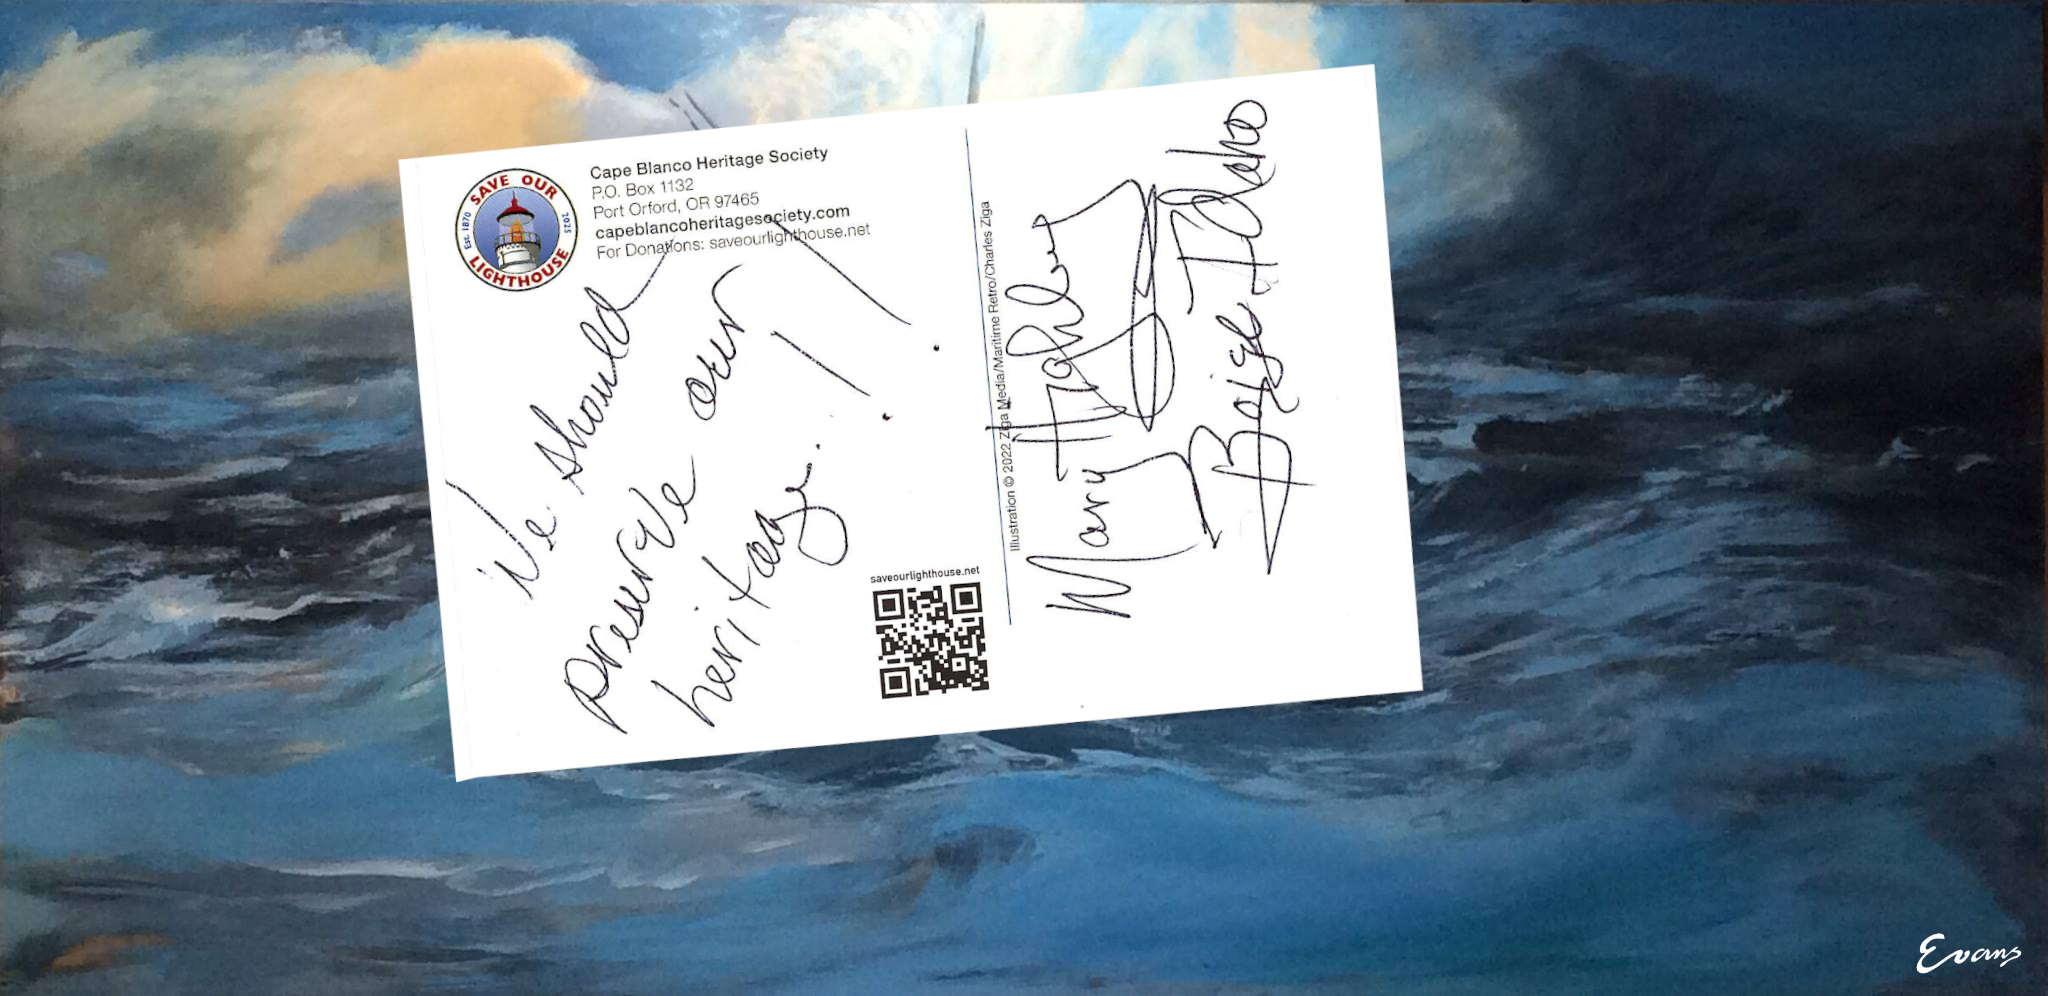 SAVE OUR
Est. 1870
2025
LIGHTHOUSE
Cape Blanco Heritage Society
P.O. Box 1132
Port Orford, OR 97465
capeblancoheritagesociety.com
For Donations: saveourlighthouse.net
We should
preserve our
heritage. ! !
saveourlighthouse.net
Illustration © 2022 Ziga Media/Maritime Retro/Charles Ziga
Mary
Boise Idaho
Evans